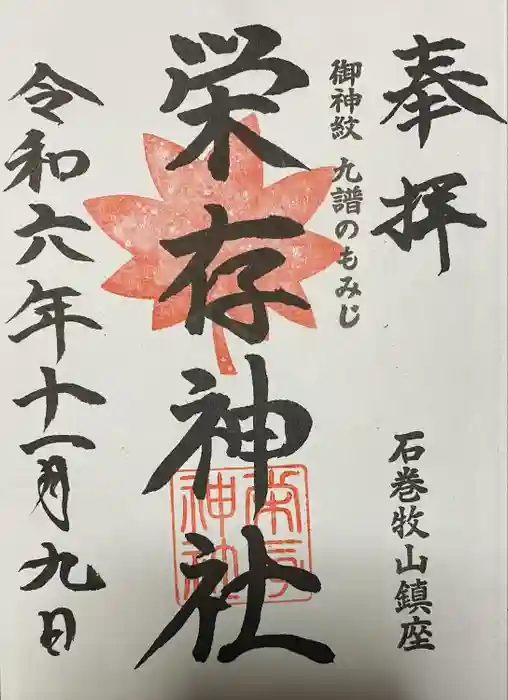 奉拝
御神紋 九譜のもみじ
石巻牧山鎮座
栄存神社
令和六年十一月九日